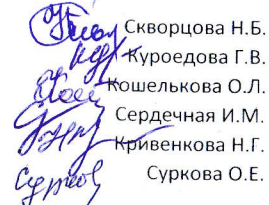 Скворцова Н.Б.
Куроедова Г.В.
Кошелькова О.Л.
Сердечная И.М.
Кривенкова Н.Г.
Суркова О.Е.